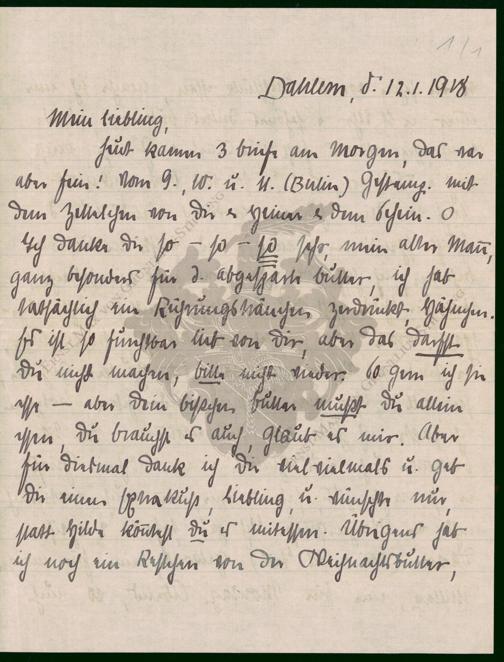 1/1
Dahlem, d. 12.1.1918
Mein Liebling,
heut kamen 3 briefe am Morgen, das war
aber fein! Vom 9., 10. u. 11. (Berlin) Gestemp. mit
dem Zettelchen von Dir & Heiner & dem Schein. O
Ich danke dir so – so – so sehr, mein alter Mann,
ganz besonders für d. abgesparte butter, ich hab
tatsächlich ein Rührungstränchen zerdrückt,
Es ist so furchtbar lieb von Dir, aber das darfst
Du nicht machen, bitte nicht wieder. So gern ich sie
esse – aber dein bißchen butter mußt du allein
essen, du brauchst es auch, glaub es mir. Aber
für diesmal dank ich dir viel vielmals u. geb
dir einen Extrakuß, Liebling, u. wünschte nur,
statt Hilde könntest du es mitessen. Übrigens hab
ich noch ein Restchen von der Weihnachtsbutter,